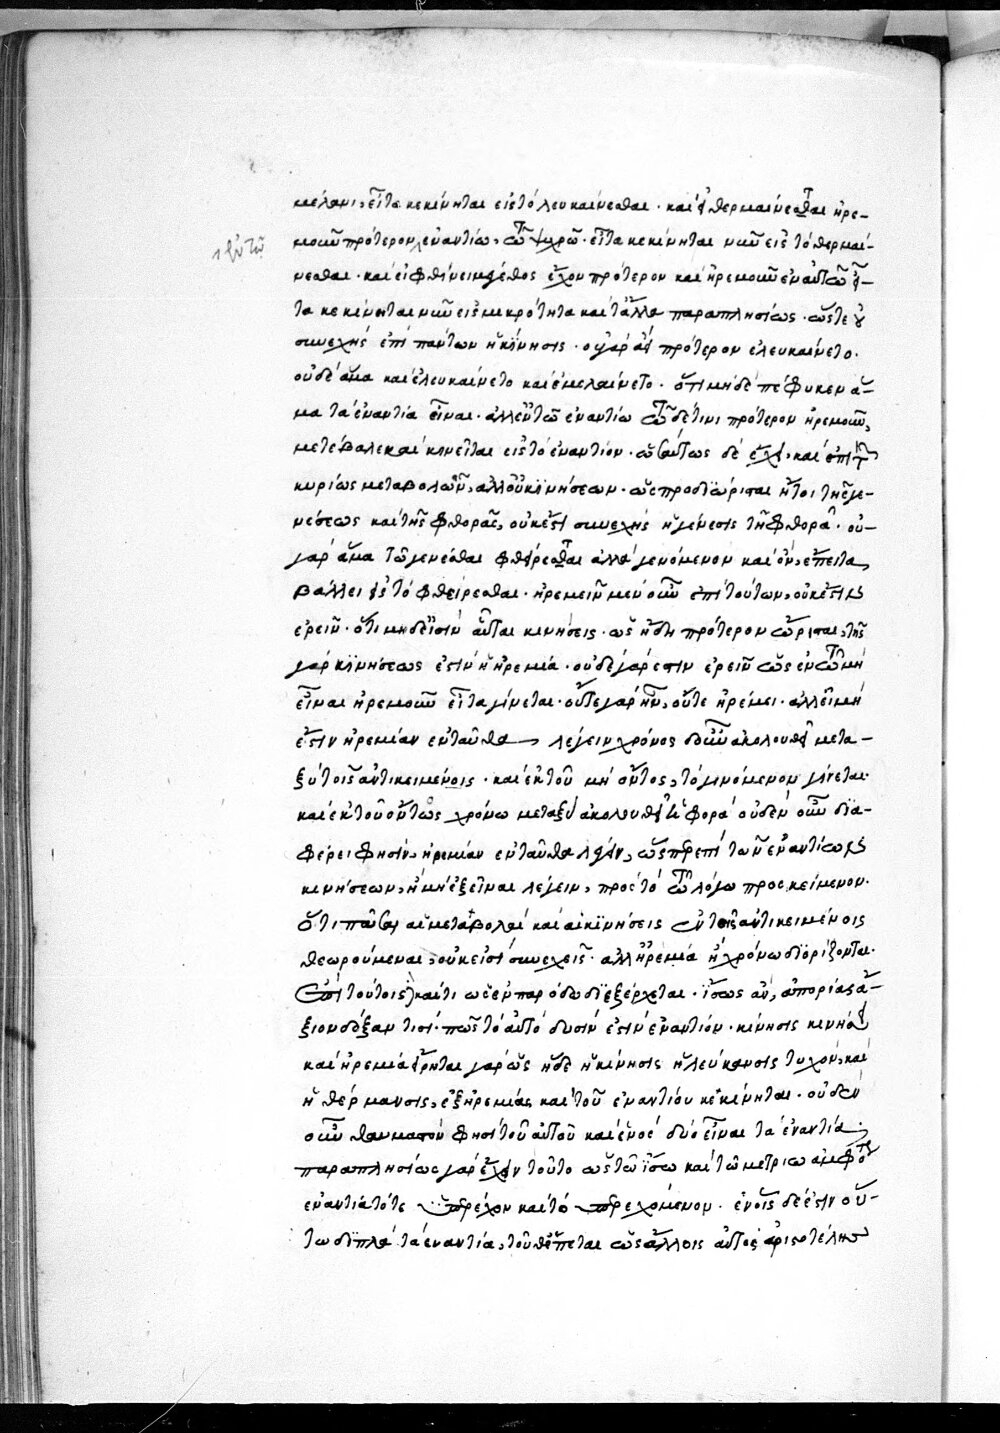 μέλανι, εἶτα κεκίνηται εἰς τὸ λευκαίνεσθαι· καὶ εἰ θερμαίνεσθαι ἠρε-
μοῦν πρότερον ἐν ἐναντίω, τῶ ψυχρῶ· εἶτα κεκίνηται νῦν εἰς τὸ θερμαί-
νεσθαι· καὶ εἰ φθίνει μέγεθος ἔχον πρότερον καὶ ἠρεμοῦν ἐν αὐτῶ εἶ-
τα κεκίνηται νῦν εἰς μικρότητα καὶ τἄλλα παραπλησίως· ὥστε οὐ
συνεχὴς ἐπὶ πάντων ἡ κίνησις· ὁ γὰρ πρότερον ἐλευκαίνετο·
οὐδὲ ἅμα καὶ ἐλευκαίνετο καὶ ἐμελαίνετο· ὅτι μηδὲ πέφυκεν ἅ-
μα τὰ ἐναντία εἶναι· ἀλλ' ἐν τῶ ἐναντίω τῶδέ τινι πρότερον ἠρεμοῦν,
μετέβαλε καὶ κινεῖται εἰς τὸ ἐναντίον· ὡσαύτως δὲ ἔχει καὶ ἐπὶ τῶν
κυρίως μεταβολῶν, ἀλλ' οὐ κινήσεων· ὡς προσδιώρισται ἤτοι τῆς γε-
νέσεως καὶ τῆς φθορᾶς, οὐκ ἔστι συνεχὴς ἡ γένεσις τῆ φθορᾶ· οὐ
γὰρ ἅμα τῶ γενέσθαι φθείρεσθαι ἀλλὰ γενόμενον καὶ ὂν, ἔπειτα
βάλλει εἰς τὸ φθείρεσθαι· ἠρεμεῖν μὲν οὖν ἐπὶ τούτων, οὐκ ἔστιν
ἐρεῖν· ὅτι μηδέ εἰσιν αὗται κινήσεις· ὡς ἤδη πρότερον ὥρισται, τῆς
γὰρ κινήσεώς ἐστιν ἡ ἠρεμία· οὐδὲ γάρ ἐστιν ἐρεῖν ὡς ἐν τῶ μὴ
εἶναι ἠρεμοῦν εἶτα γίνεται· οὔτε γὰρ ἦν, οὔτε ἠρέμει· ἀλλ' εἰ μὴ
ἔστιν ἠρεμίαν ἐνταῦθα λέγειν χρόνος δ' οὖν ἀκολουθεῖ μετα-
ξὺ τοῖς ἀντικειμένοις· καὶ ἐκ τοῦ μὴ ὄντος, τὸ γινόμενον γίνεται·
καὶ ἐκ τοῦ ὄντος χρόνω μεταξὺ ἀκολουθεῖ ἡ φθορά οὐδὲν οὖν δια-
φέρει φησὶν, ἠρεμίαν ἐνταῦθα λέγειν, ὥσπερ ἐπὶ τῶν ἐναντίων
κινήσεων, ἢ μὴ ἐξεῖναι λέγειν, πρὸς τὸ τῶ λόγω προσκείμενον·
ὅτι πᾶσαι αἱ μεταβολαὶ καὶ αἱ κινήσεις ἐν τοῖς ἀντικειμένοις
θεωρούμεναι, οὐκ εἰσὶ συνεχεῖς· ἀλλ' ἠρεμία ἢ χρόνω διορίζονται·
ἐπὶ τούτοις καί τι ὡς ἐν παρόδω διεξέρχεται· ἴσως ἂν, ἀπορίας ἄ-
ξιον δόξαν τισί· πῶς τὸ αὐτὸ δυσίν ἐστιν ἐναντίον· κίνησις κινήσει
καὶ ἠρεμία εἴρηται γὰρ ὡς ἥδε ἡ κίνησις ἡ λεύκανσις τυχὸν, καὶ
ἡ θέρμανσις, ἐξ ἠρεμίας καὶ τοῦ ἐναντίου κεκίνηται· οὐδὲν
οὖν θαυμαστόν φησι τοῦ αὐτοῦ καὶ ἑνός δύο εἶναι τὰ ἐναντία·
παραπλησίως γὰρ ἔχειν τοῦτο ὡς τῶ ἴσω καὶ τῶ μετρίω ἀμφότερα
ἐναντία τό τε ὑπερέχον καὶ τὸ ὑπερεχόμενον· ἐν οἷς δέ ἐστιν οὕ-
τω διπλᾶ τὰ ἐναντία, τοῦθ' ἕπεται ὡς ἄλλοις αὐτὸς ἀριστοτέλης